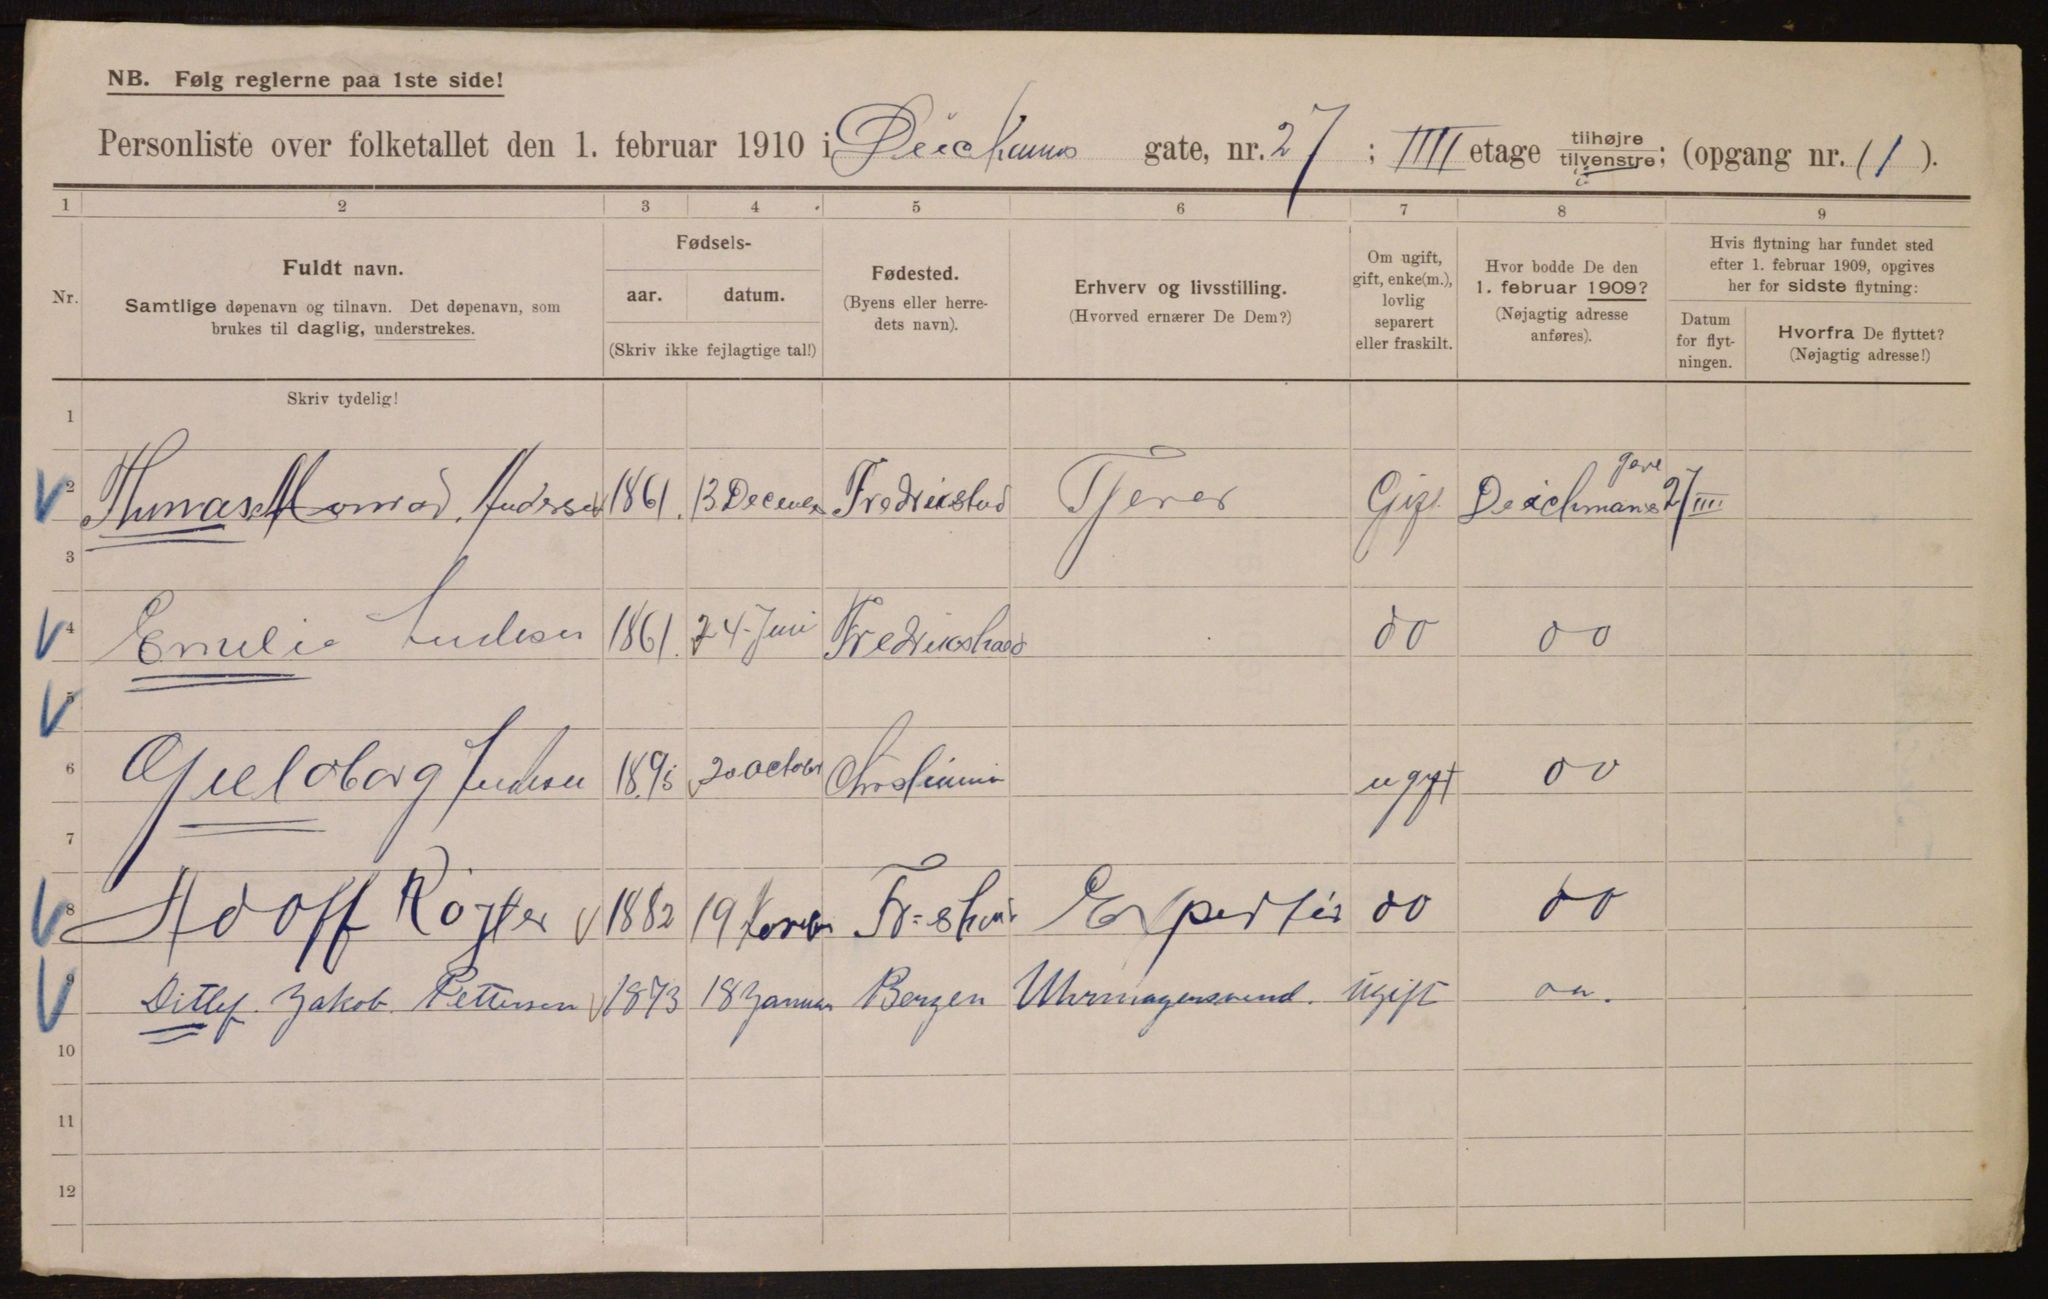 NB. Følg reglerne paa 1ste side!
Personliste over folketallet den 1. februar 1910 i Deickmans gate, nr. 27; IIII etage tilhøjre tilvenstre; (opgang nr. (1).
1 2 3 4 5 6 7 8 9
Nr.
Fuldt navn.
Samtlige døpenavn og tilnavn. Det døpenavn, som
brukes til daglig, understrekes.
Fødsels-
aar. datum.
(Skriv ikke fejlagtige tal!)
Fødested.
(Byens eller herre-
dets navn).
Erhverv og livsstilling.
(Hvorved ernærer De Dem?)
Om ugift,
gift, enke(m.),
lovlig
separert
eller fraskilt.
Hvor bodde De den
1. februar 1909?
(Nøjagtig adresse
anføres).
Hvis flytning har fundet sted
efter 1. februar 1909, opgives
her for sidste flytning:
Datum
for flyt-
ningen.
Hvorfra De flyttet?
(Nøjagtig adresse!)
Skriv tydelig!
1
2 Thomas Andersen 1861. 13 Fredrikstad Gift Deichmans 27 IIII
3
4 Emelie Andersen 1861. 24 Juni Fredrikstad do do
5
6 Andersen 1895 20 october Christiania ugift do
7
8 Adolf 1882 19 do do
9 Ditlef Jakob Pettersen 1873 18 Januar Bergen Uhrmagersvend. ugift
10
11
12